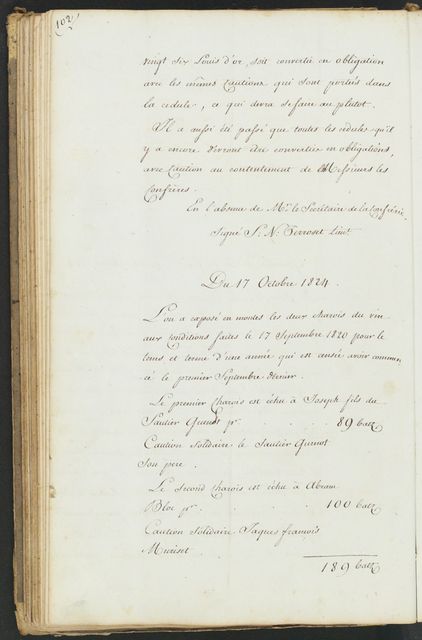 102
vingt six Louis d'or, soit convertie en obligation
avec les mêmes Cautions qui sont portées dans
la cedule, ce qui devra se faire au plutot.
Il a aussi été passé que toutes les cédules qu'il
y a encore devront être convertie en obligations,
avec Caution au contentement de Messieurs les
Confrères.
En l'absence de Mr. le Secrétaire de la Confrérie,
Signé S. N. Perroset Lieut
Du 17 Octobre 1824.
L'on a exposé en montes les deux charois du vin
aux conditions faites le 17 Septembre 1820 pour le
tems et terme d'une année qui est censée avoir commen
cé le premier Septembre dernier.
Le premier Charois est échu à Joseph fils du
Sautier Quenot pr. 89 batz
Caution Solidaire le Sautier Quenot
Son pere.
Le second Charois est échu à Abram
Bloc pr. 100 batz
Caution Solidaire Jaques francois
Muriset
189 batz